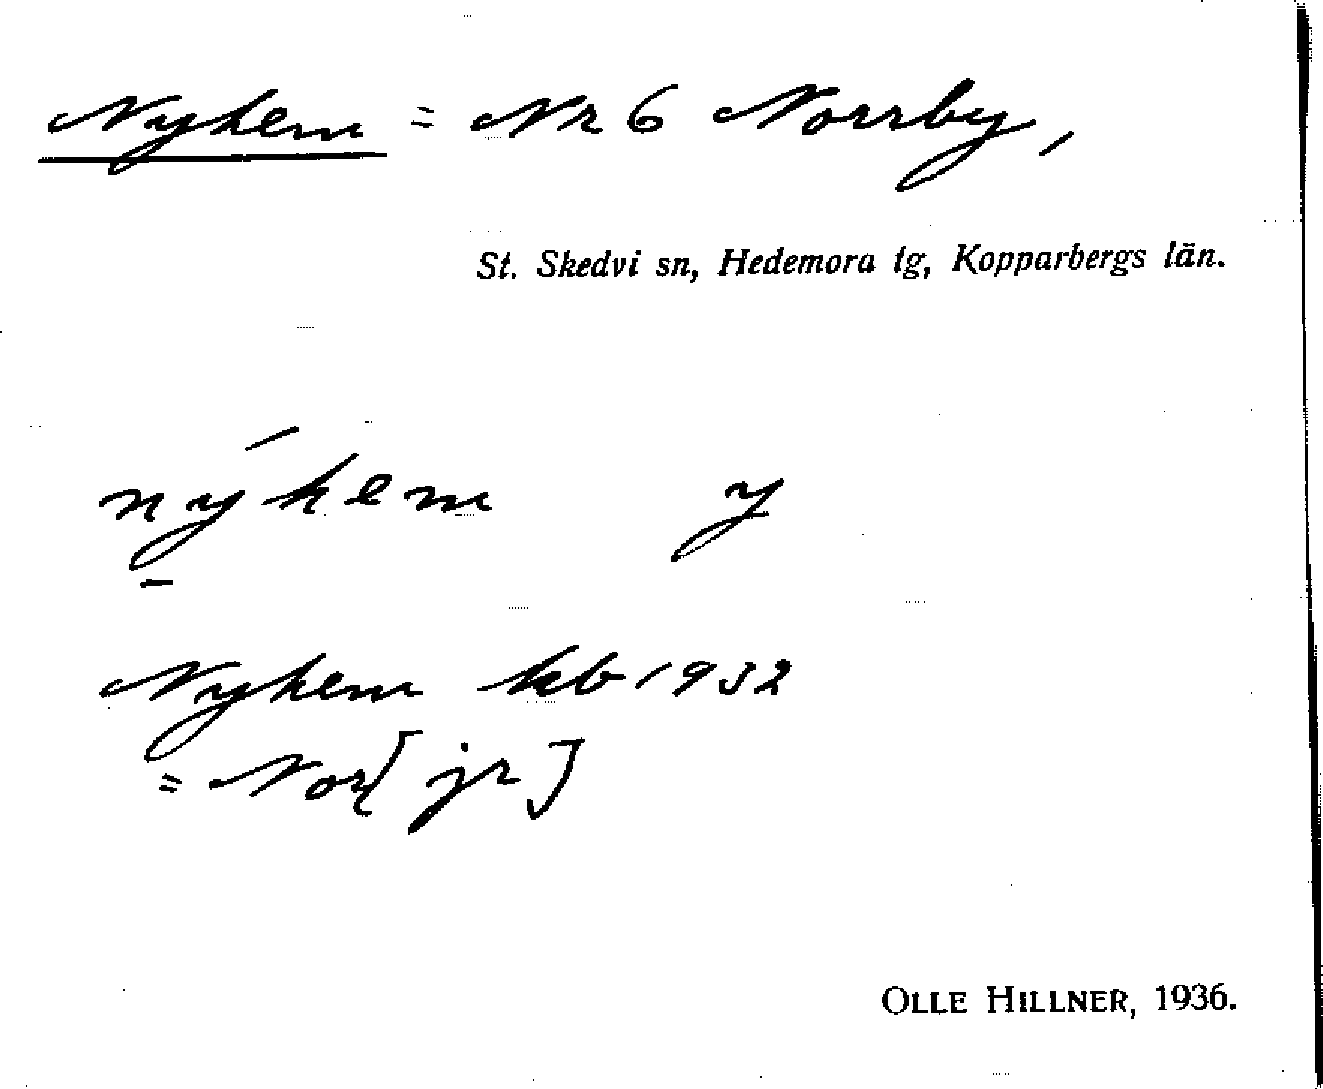 Nyhem = Nr 6 Norrby,
St. Skedvi sn, Hedemora tg, Kopparbergs län.
nýhem y
Nyhem kb 1932
= Nor[jr]
OLLE HILLNER, 1936.